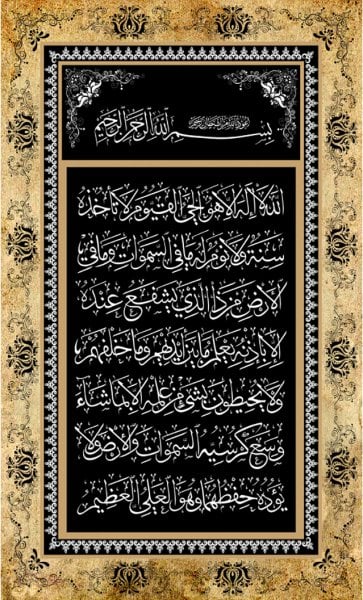 اعوذ بالله من الشيطان الرجيم
بسم الله الرحمن الرحيم
الله لا إله إلا هو الحي القيوم لا تأخذه
سنة ولا نوم له ما في السموات وما في
الارض من ذا الذي يشفع عنده
إلا بإذنه يعلم ما بين أيديهم وما خلفهم
ولا يحيطون بشيء من علمه إلا بما شاء
وسع كرسيه السموات والارض ولا
يؤده حفظهما وهو العلي العظيم